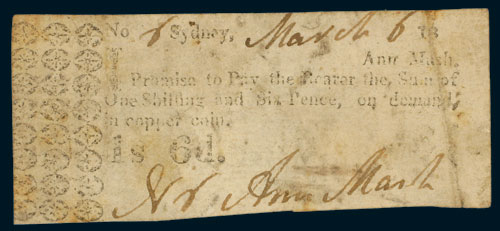 No 6 Sydney, March 6 18
Ann Mash.
I Promise to Pay the Bearer the, Sum of
One Shilling and Six Pence, on demand,
in copper coin.
1s 6d.
Ann Mash